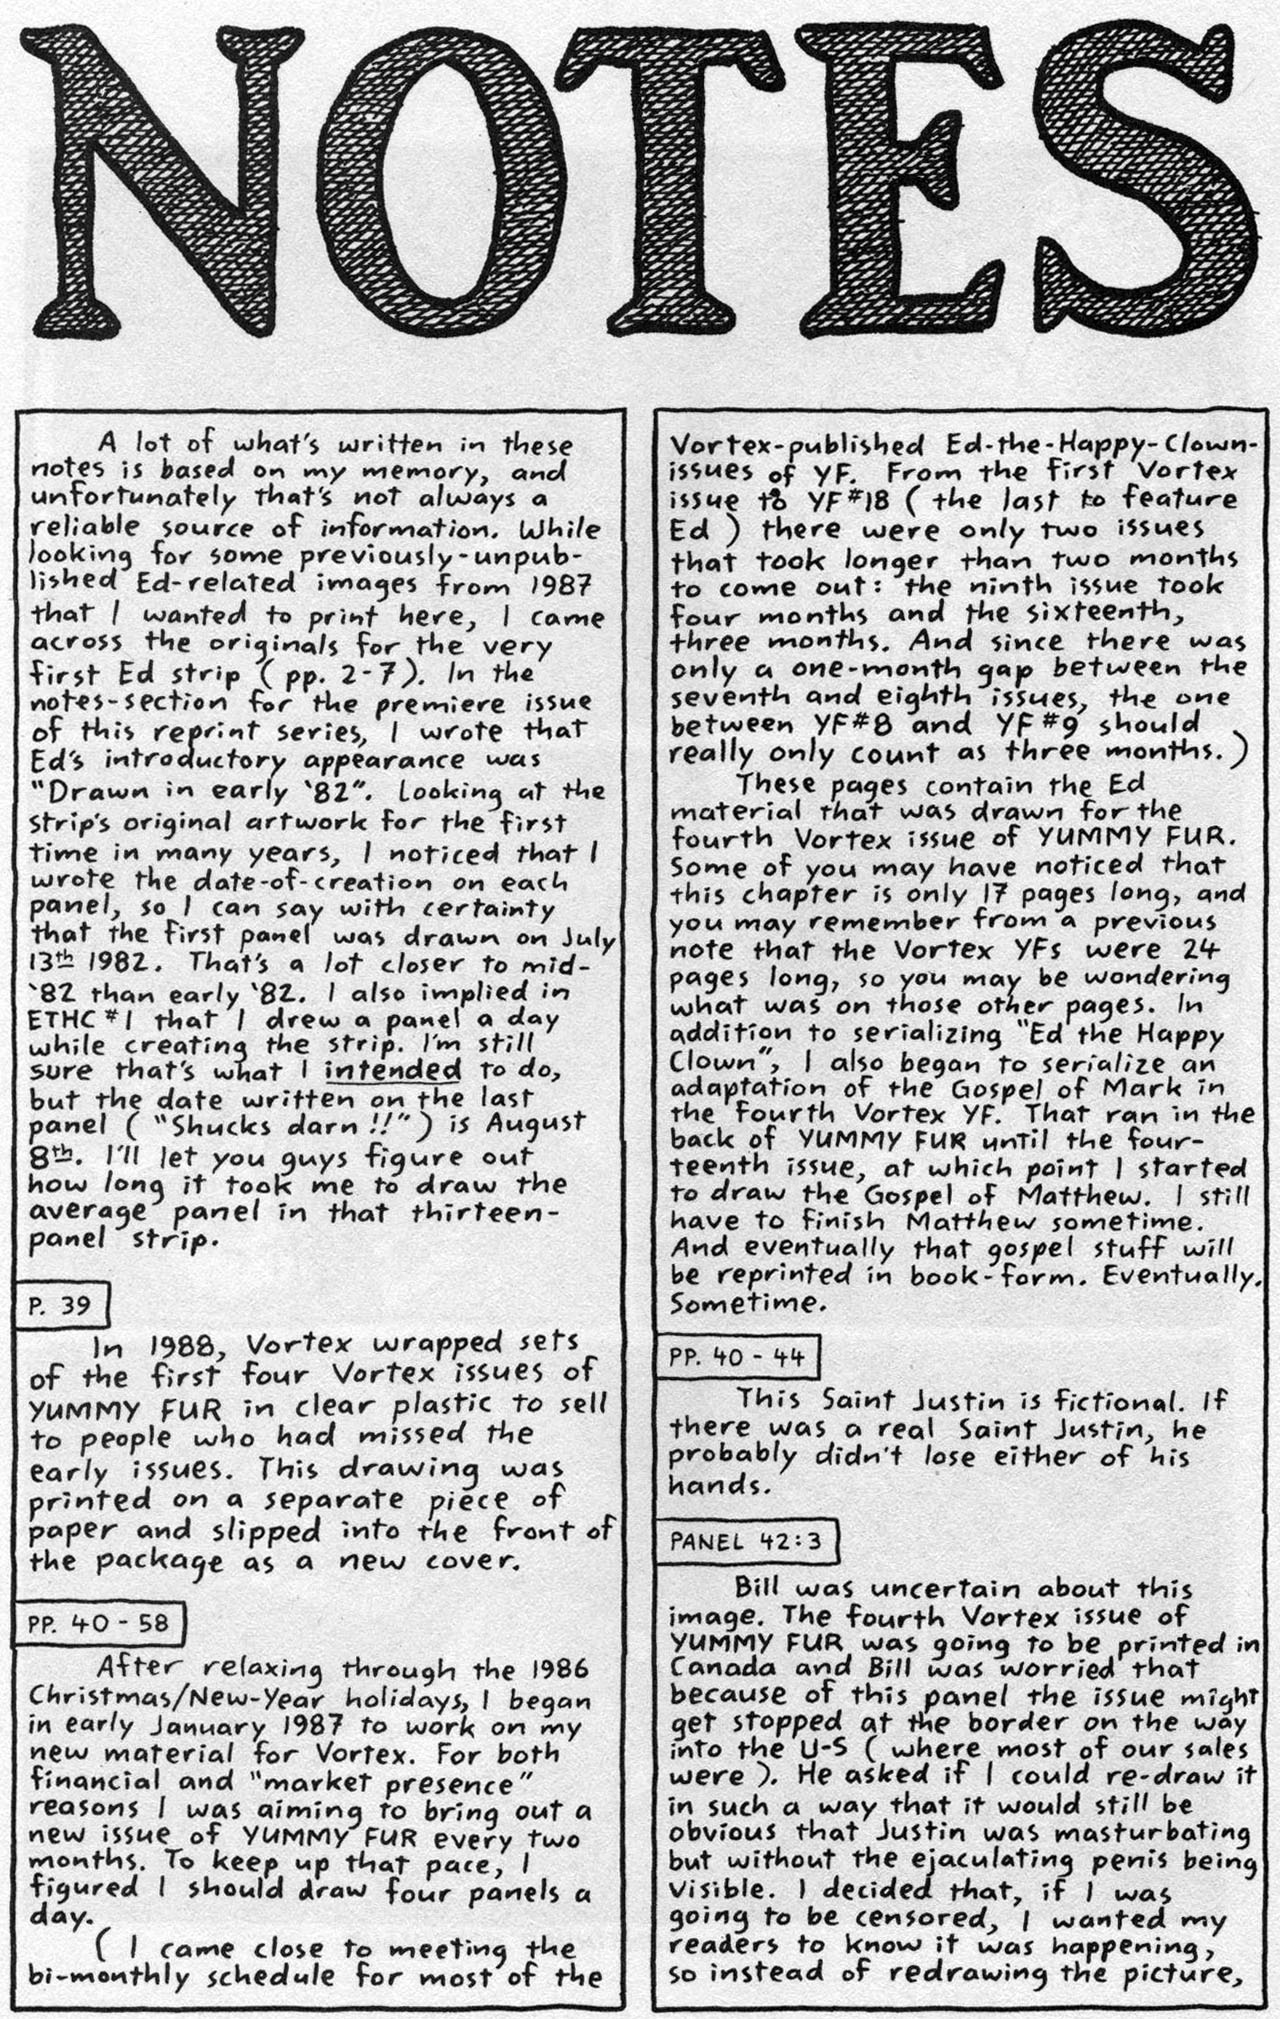 NOTES
A lot of what's written in these
notes is based on my memory, and
unfortunately that's not always a
reliable source of information. While
looking for some previously-unpub-
lished Ed-related images from 1987
that I wanted to print here, I came
across the originals for the very
first Ed strip (pp. 2-7). In the
notes-section for the premiere issue
of this reprint series, I wrote that
Ed's introductory appearance was
"Drawn in early '82". Looking at the
strip's original artwork for the first
time in many years, I noticed that I
wrote the date-of-creation on each
panel, so I can say with certainty
that the first panel was drawn on July
13th 1982. That's a lot closer to mid-
'82 than early '82. I also implied in
ETHC #1 that I drew a panel a day
while creating the strip. I'm still
sure that's what I intended to do,
but the date written on the last
panel ("Shucks darn!!") is August
8th. I'll let you guys figure out
how long it took me to draw the
average panel in that thirteen-
panel strip.
P. 39
In 1988, Vortex wrapped sets
of the first four Vortex issues of
YUMMY FUR in clear plastic to sell
to people who had missed the
early issues. This drawing was
printed on a separate piece of
paper and slipped into the front of
the package as a new cover.
PP. 40 - 58
After relaxing through the 1986
Christmas/New-Year holidays, I began
in early January 1987 to work on my
new material for Vortex. For both
financial and "market presence"
reasons I was aiming to bring out a
new issue of YUMMY FUR every two
months. To keep up that pace, I
figured I should draw four panels a
day.
(I came close to meeting the
bi-monthly schedule for most of the
Vortex-published Ed-the-Happy-Clown-
issues of YF. From the first Vortex
issue to YF #18 (the last to feature
Ed) there were only two issues
that took longer than two months
to come out: the ninth issue took
four months and the sixteenth,
three months. And since there was
only a one-month gap between the
seventh and eighth issues, the one
between YF#8 and YF #9 should
really only count as three months.)
These pages contain the Ed
material that was drawn for the
fourth Vortex issue of YUMMY FUR.
Some of you may have noticed that
this chapter is only 17 pages long, and
you may remember from a previous
note that the Vortex YFs were 24
pages long, so you may be wondering
what was on those other pages. In
addition to serializing "Ed the Happy
Clown", I also began to serialize an
adaptation of the Gospel of Mark in
the fourth Vortex YF. That ran in the
back of YUMMY FUR until the four-
teenth issue, at which point I started
to draw the Gospel of Matthew. I still
have to finish Matthew sometime.
And eventually that gospel stuff will
be reprinted in book-form. Eventually.
Sometime.
PP. 40 - 44
This Saint Justin is fictional. If
there was a real Saint Justin, he
probably didn't lose either of his
hands.
PANEL 42:3
Bill was uncertain about this
image. The fourth Vortex issue of
YUMMY FUR was going to be printed in
Canada and Bill was worried that
because of this panel the issue might
get stopped at the border on the way
into the U-S (where most of our sales
were). He asked if I could re-draw it
in such a way that it would still be
obvious that Justin was masturbating
but without the ejaculating penis being
visible. I decided that, if I was
going to be censored, I wanted my
readers to know it was happening,
so instead of redrawing the picture,